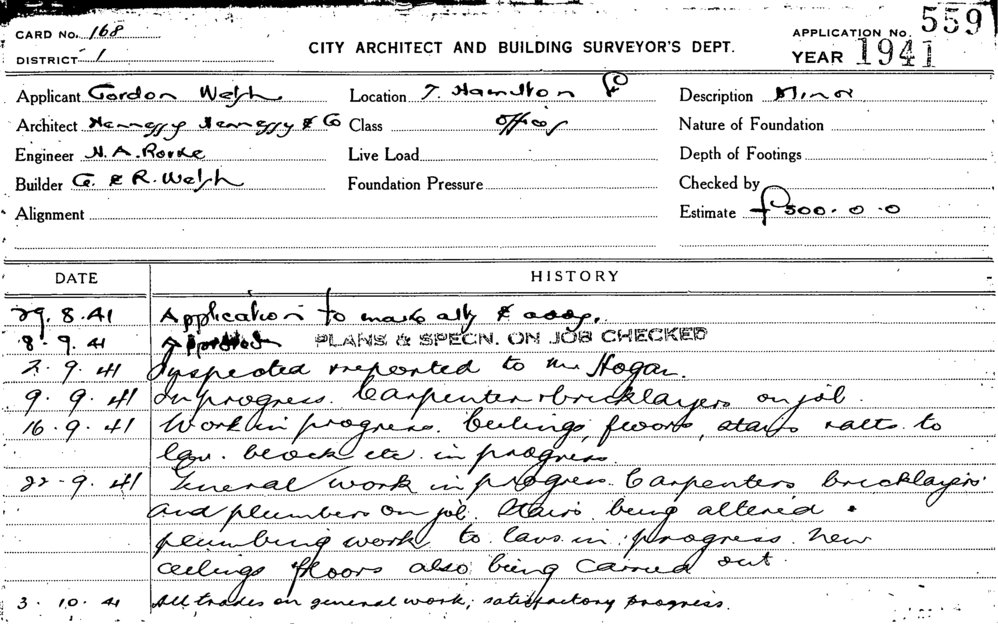 CARD No. 168
DISTRICT 1
CITY ARCHITECT AND BUILDING SURVEYOR'S DEPT.
APPLICATION No. 559
YEAR 1941
Applicant Gordon Welsh Location T. Hamilton Description Minor
Architect Hennessy Hennessy & Co Class Offices Nature of Foundation
Engineer N.A. Rorke Live Load Depth of Footings
Builder G. & R. Welsh Foundation Pressure Checked by
Alignment Estimate £500.0.0
DATE HISTORY
29.8.41 Application to make alts & adds.
8.9.41 Approved PLANS & SPECN. ON JOB CHECKED
2.9.41 Inspected & reported to Mr Hogan.
9.9.41 In progress. Carpenters & bricklayers on job.
16.9.41 Work in progress. Ceilings, floors, stairs & alts to
lav. block etc. in progress.
22-9.41 General work in progress. Carpenters bricklayers
and plumbers on job. Stairs being altered.
plumbing work to lavs. in progress. New
ceilings floors also being carried out.
3.10.41 All trades on general work; satisfactory progress.